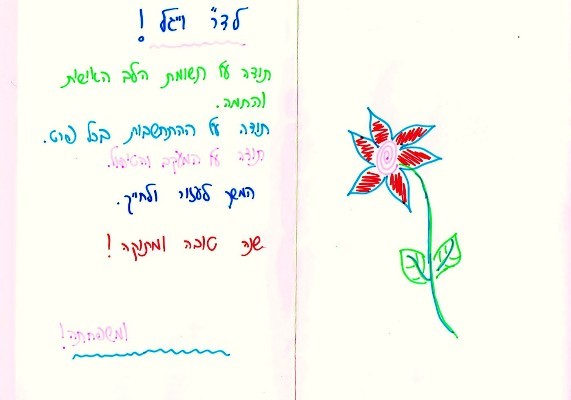 לדר' ויגל !
תודה על תשומת הלב האישית
והחמה.
תודה על ההתחשבות בכל פרט.
תודה על המעקב והטיפול.
המשך לעזור ולחייך.
שנה טובה ומתוקה !
ומשפחתה!